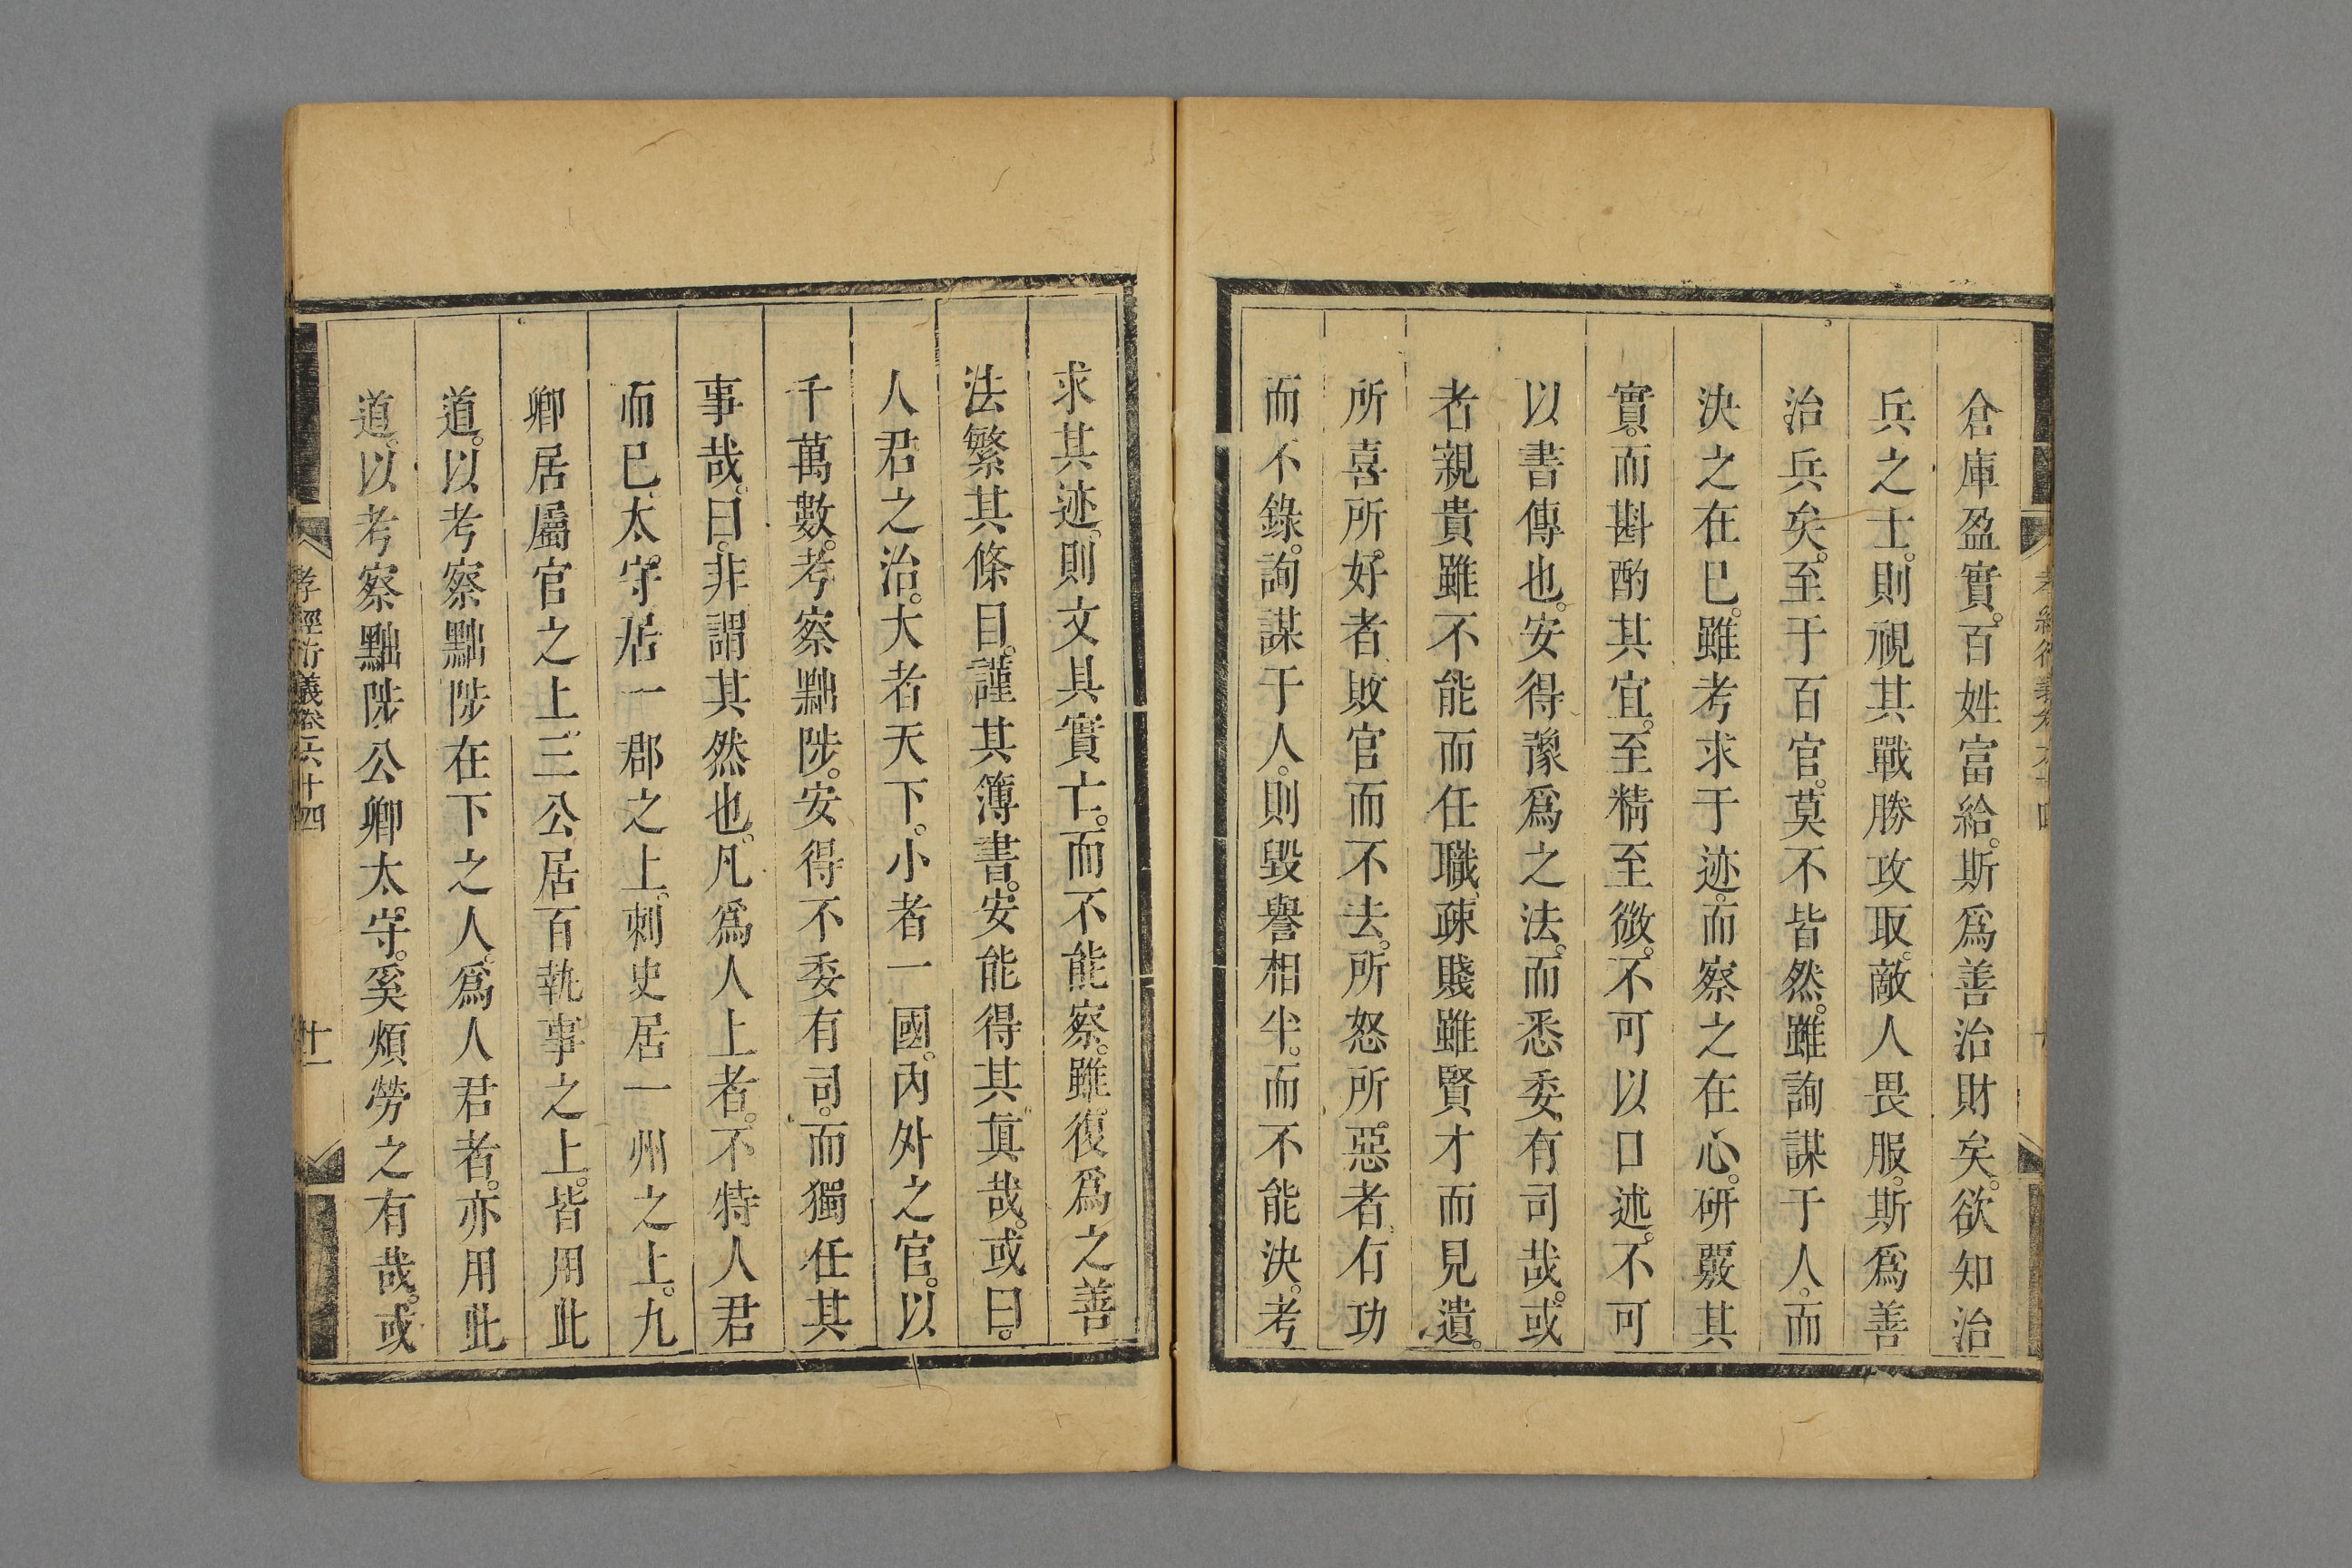 倉庫盈實。百姓富給。斯爲善治財矣。欲知治
兵之士。則視其戰勝攻取。敵人畏服。斯爲善
治兵矣。至于百官。莫不皆然。雖詢謀于人。而
決之在已。雖考求于迹。而察之在心。研覈其
實。而斟酌其宜。至精至微。不可以口述。不可
以書傳也。安得豫爲之法。而悉委有司哉。或
者親貴雖不能而任職。疎賤雖賢才而見遺。
所喜所好者。敗官而不去。所怒所惡者。有功
而不錄。詢謀于人。則毀譽相半。而不能決。考
求其迹。則文具實亡。而不能察。雖復爲之善
法。繁其條目。謹其簿書。安能得其眞哉。或曰。
人君之治。大者天下。小者一國。內外之官。以
千萬數。考察黜陟。安得不委有司。而獨任其
事哉。曰。非謂其然也。凡爲人上者。不特人君
而已。太守居一郡之上。刺史居一州之上。九
卿居屬官之上。三公居百執事之上。皆用此
道。以考察黜陟在下之人。爲人君者。亦用此
道。以考察黜陟公卿太守。奚煩勞之有哉。或
孝經衍義卷六十四
十一